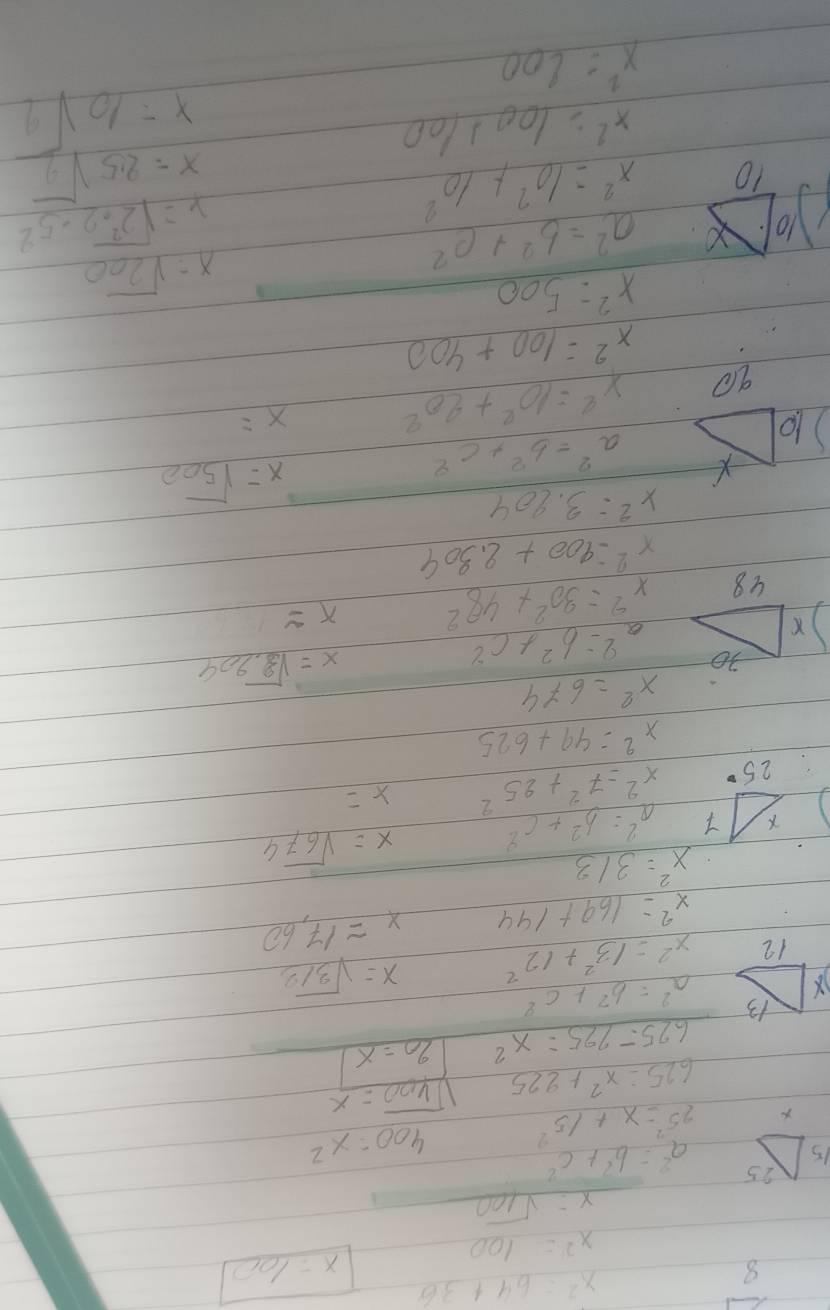 8
x² = 64 + 36
x² = 100
x = √100
x = 100
15
25
x
a² = b² + c²
25² = x + 15²
625 = x² + 225
625 - 225 = x²
400 = x²
√400 = x
20 = x
x
13
12
a² = b² + c²
x² = 13² + 12²
x² = 169 + 144
x² = 313
x = √313
x = 17,60
x
7
25
a² = b² + c²
x² = 7² + 25²
x² = 49 + 625
x² = 674
x = √674
x =
x
30
48
a² = b² + c²
x² = 30² + 48²
x² = 900 + 2.304
x² = 3.204
x = √3.204
x =
10
x
20
a² = b² + c²
x² = 10² + 20²
x² = 100 + 400
x² = 500
x = √500
x =
10
x
10
a² = b² + c²
x² = 10² + 10²
x² = 100 + 100
x² = 200
x = √200
x = √2² . 2 . 5²
x = 2.5 √2
x = 10 √2